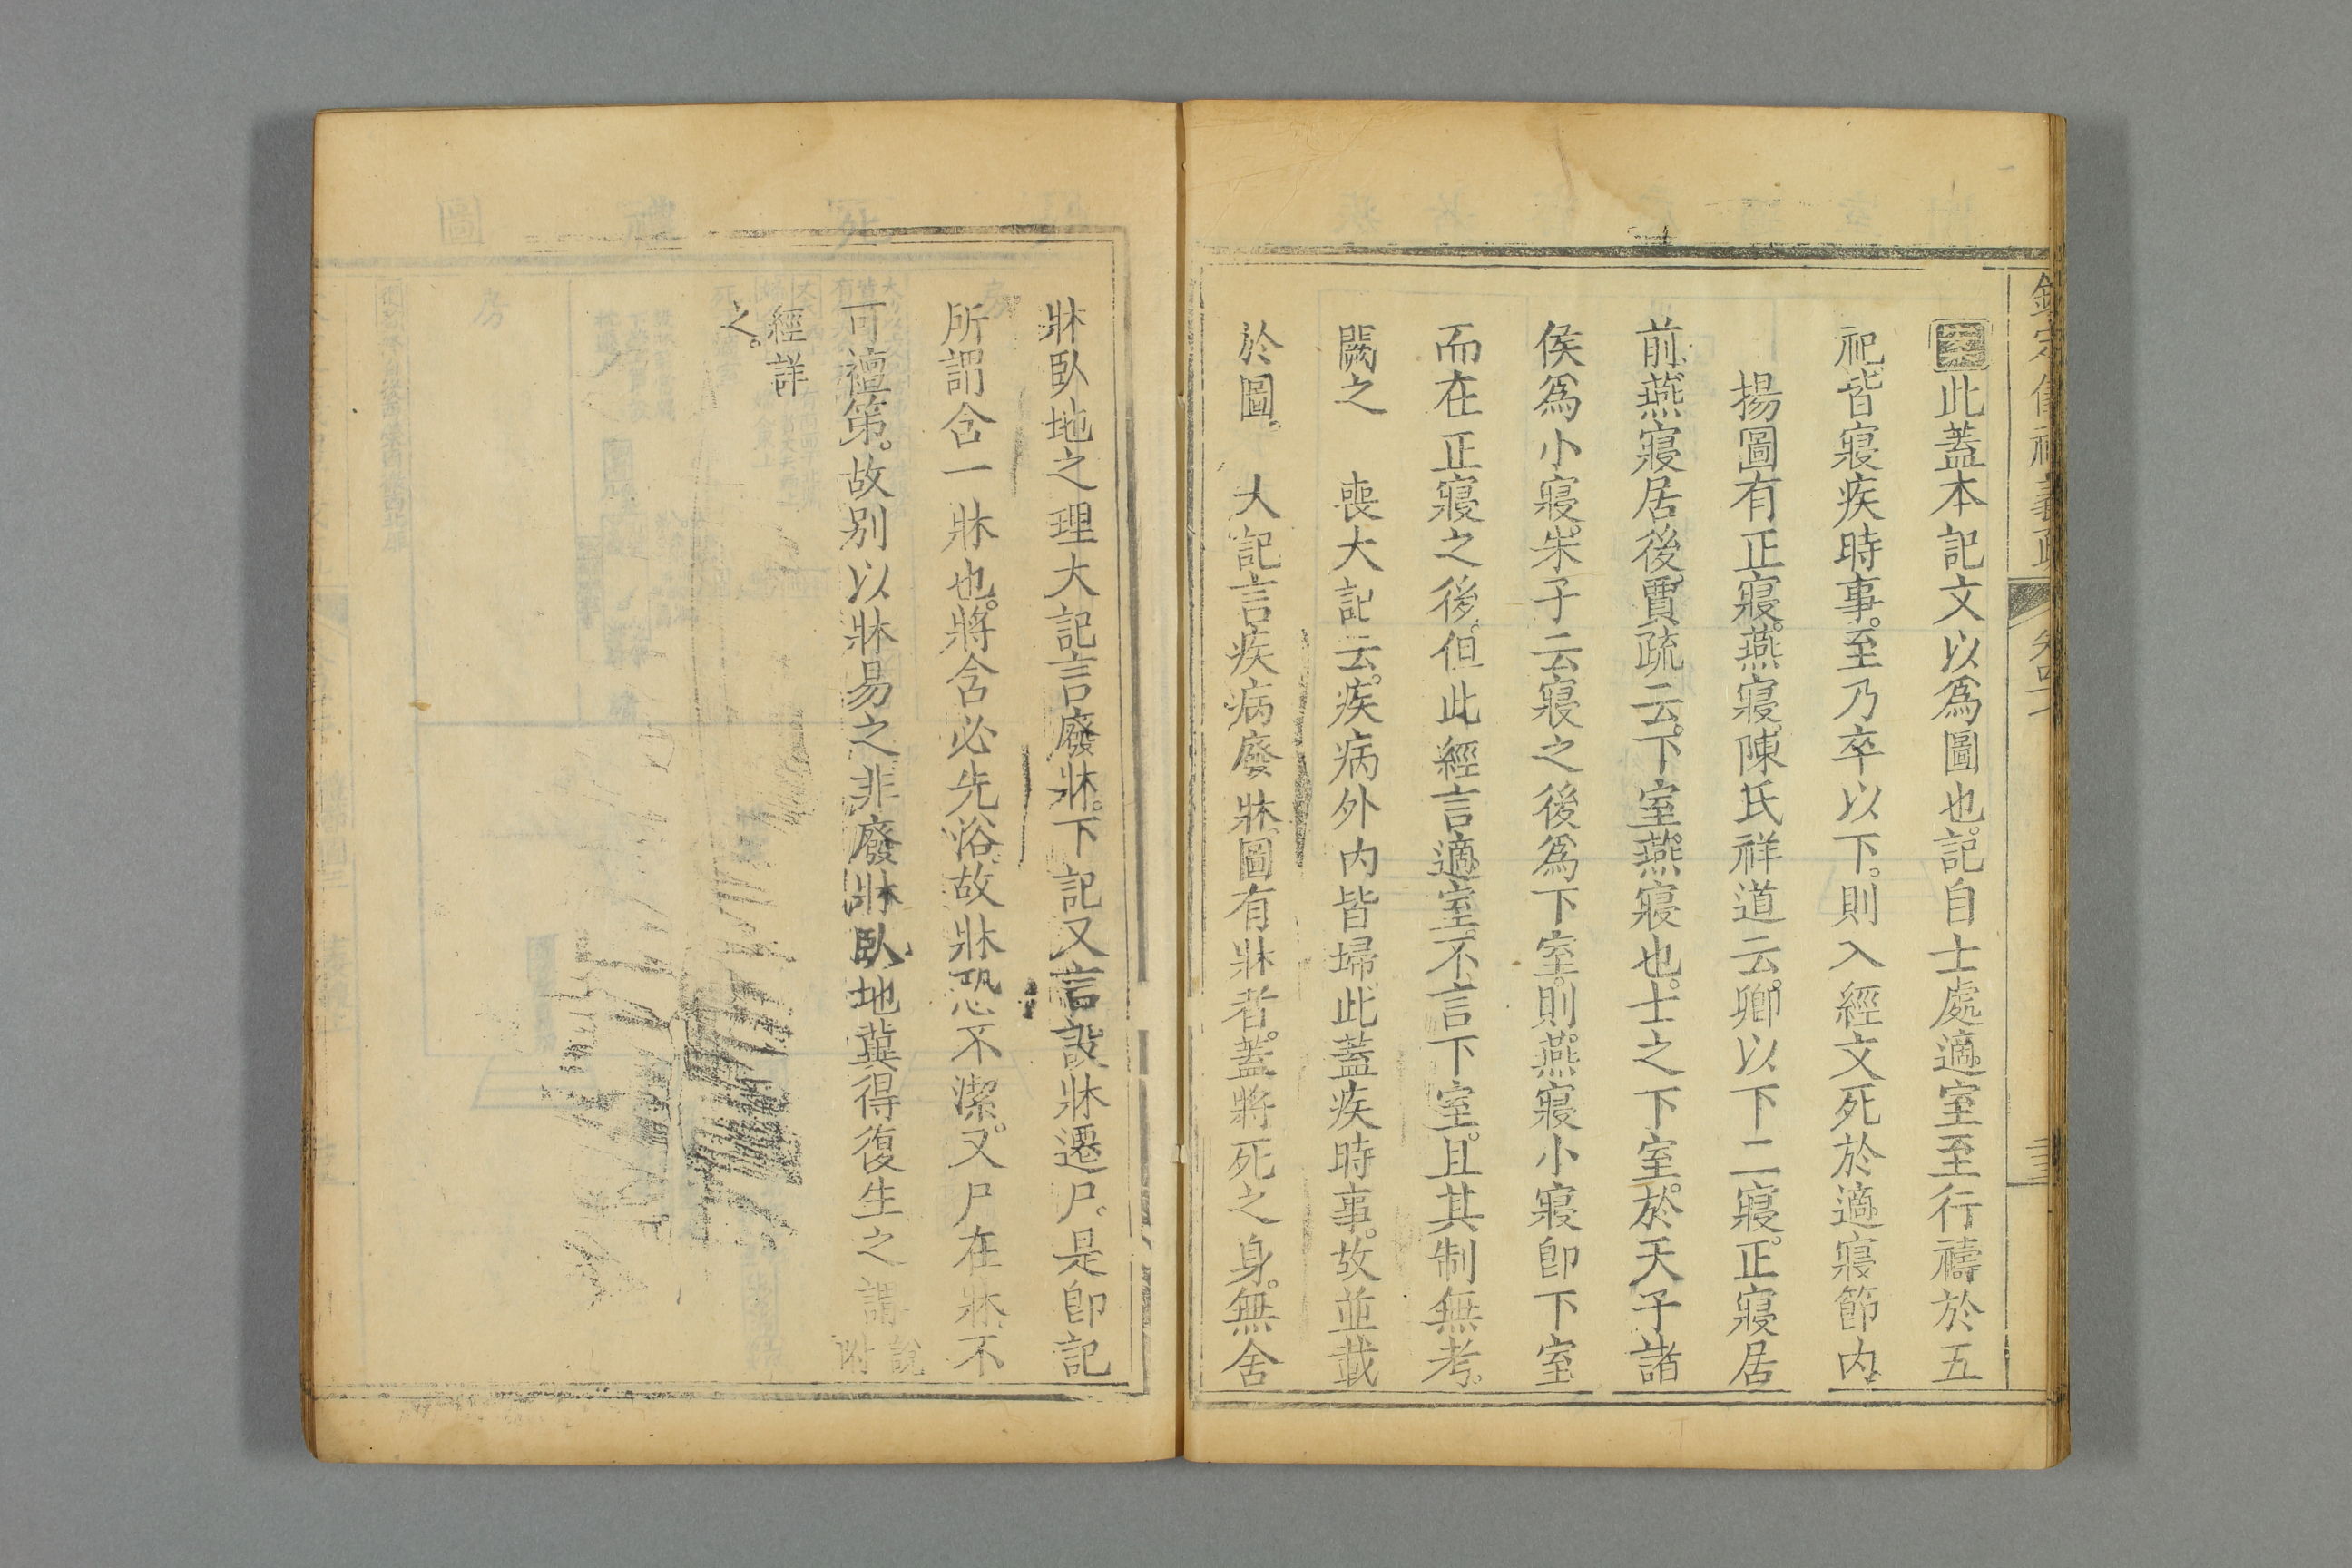 此蓋本記文以爲圖也。記自士處適室至行禱於五
祀。皆寢疾時事。至乃卒以下。則入經文死於適寢節内。
揚圖有正寢。燕寢。陳氏祥道云。卿以下二寢。正寢居
前。燕寢居後。賈疏云。下室。燕寢也。士之下室。於天子諸
侯爲小寢。朱子云寢之後爲下室。則燕寢小寢卽下室
而在正寢之後。但此經言適室。不言下室。且其制無考。
闕之 喪大記云。疾病外内皆埽。此蓋疾時事。故並載
於圖。 大記言疾病廢牀。圖有牀者。蓋將死之身。無舍
牀臥地之理大記言廢牀。下記又言設牀遷尸。是卽記
所謂含一牀也。將含必先浴。故牀恐不潔。又尸在牀。不
可襢第。故别以牀易之。非廢牀臥地冀得復生之謂說附
經詳
之。